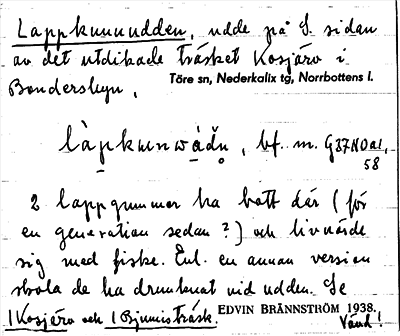 Lappkunnudden, udde på S. sidan
av det utdikade träsket Kosjärv i
Bondersbyn.
Töre sn, Nederkalix tg, Norrbottens l.
bf. m. G37NOa1,
58
2 lappgummor ha bott där (för
en generation sedan?) och livnärde
sig med fiske. Enl. en annan version
skola de ha drunknat vid udden. Se
1 Kosjärv och 1 Bjumisträsk.
EDVIN BRÄNNSTRÖM 1938.
Vänd!